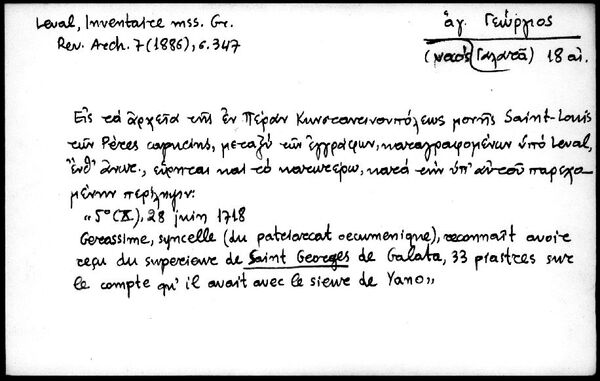 Leval, Inventaire mss. Gr.
Rev. Arch. 7 (1886), σ. 347
ἁγ. Γεώργιος
(ναός Γαλατᾶ) 18 αἰ.
Εἰς τά ἀρχεῖα τῆς ἐν Πέραν Κωνσταντινουπόλεως μονῆς Saint-Louis
τῶν Pères capucins, μεταξύ τῶν ἐγγράφων, καταγραφομένων ὑπό Leval,
ἔνθ' ἄνωτ., εὕρηται καί τό κατωτέρω, κατά τήν ὑπ' αὐτοῦ παρεχο
μένην περίληψιν:
« 5º (X.), 28 juin 1718
Gerassime, syncelle (du patriarcat oecumenique), reconnaît avoir
reçu du superieur de Saint Georges de Galata, 33 piastres sur
le compte qu' il avait avec le sieur de Yano»